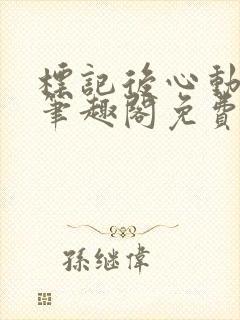 標記後心動
筆趣閣免費
孫继偉